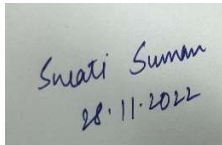 Swati Suman
28.11.2022